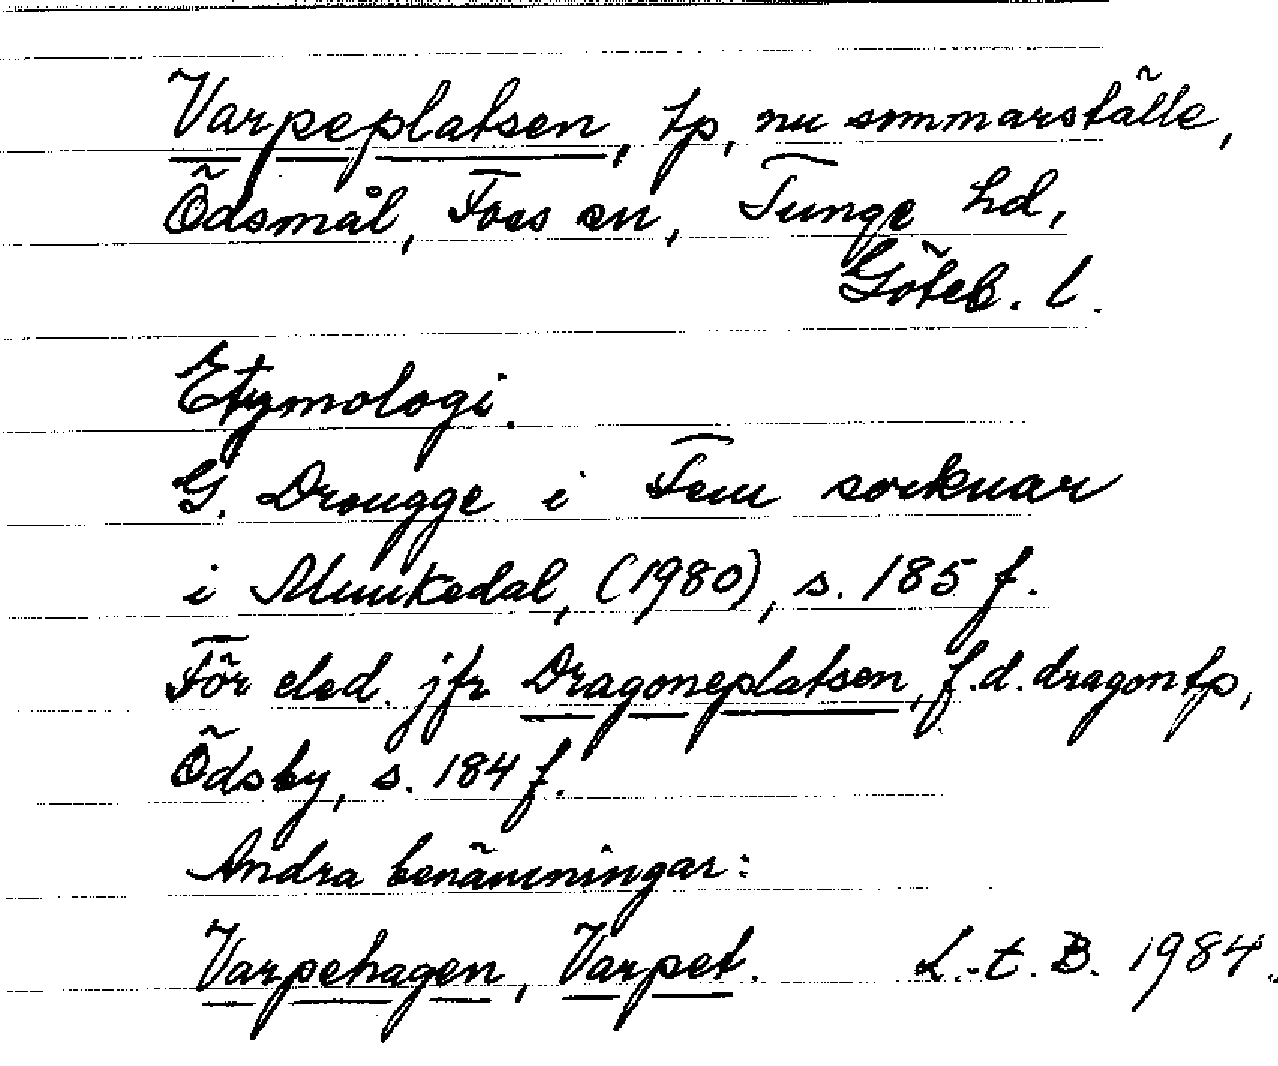 Varpeplatsen, tp, nu sommarställe,
Ödsmål, Foss sn, Tunge hd,
Göteb. l.
Etymologi.
G. Drougge i Fem socknar
i Munkedal, (1980), s. 185 f.
För eled. jfr Dragoneplatsen, f.d. dragontp,
Ödsby, s. 184 f.
Andra benämningar:
Varpehagen, Varpet. L.-t. B. 1984.